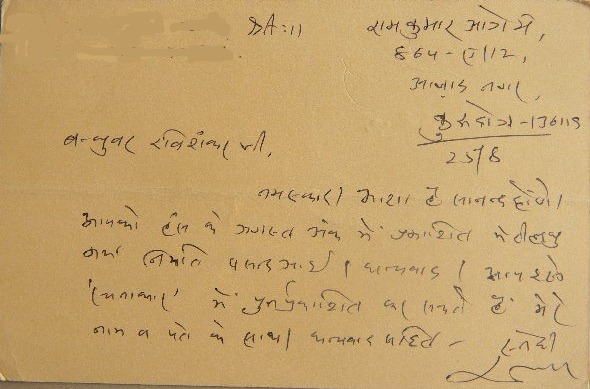 रामकुमार आत्रेय,
864-ए/12,
आज़ाद नगर,
कुरुक्षेत्र-136119
25/8
बन्धुवर रविशंकर जी,
नमस्कार। आशा है सानन्द होंगे।
आपको हंस के अगस्त अंक में प्रकाशित मेरी लघु
कथा नियति पसन्द आई। धन्यवाद। आप इसे
में पुनर्प्रकाशित कर सकते हैं मेरे
नाम व पते के साथ। धन्यवाद सहित -